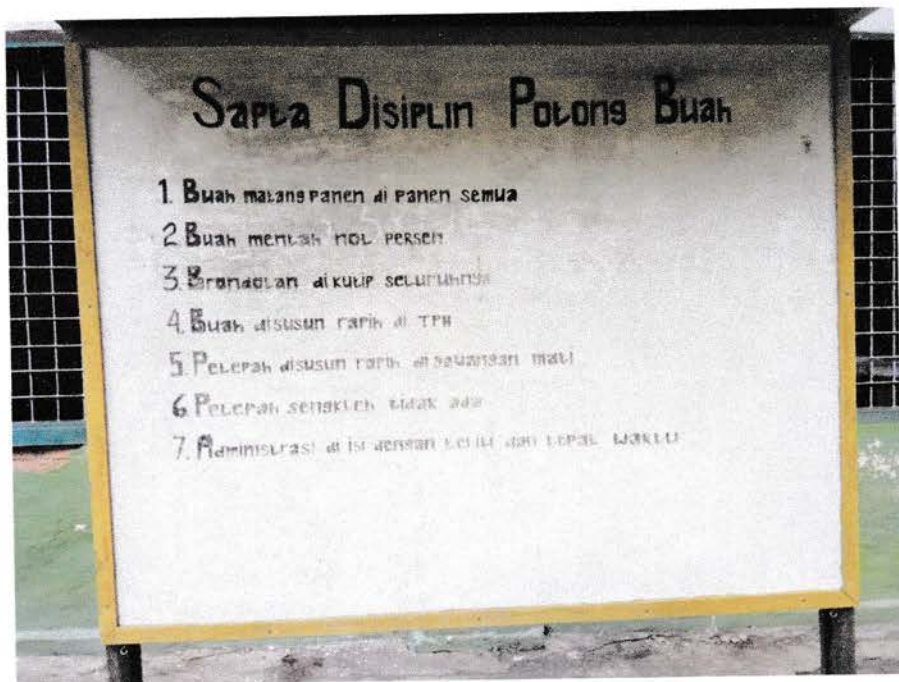 Sapta Disiplin Potong Buah
1. Buah matang panen di panen semua
2. Buah mentah nol persen
3. Brondolan di kutip seluruhnya
4. Buah disusun rapih di TPH
5. Pelepah disusun rapih di gawangan mati
6. Pelepah sengkleh tidak ada
7. Administrasi di isi dengan teliti dan tepat waktu